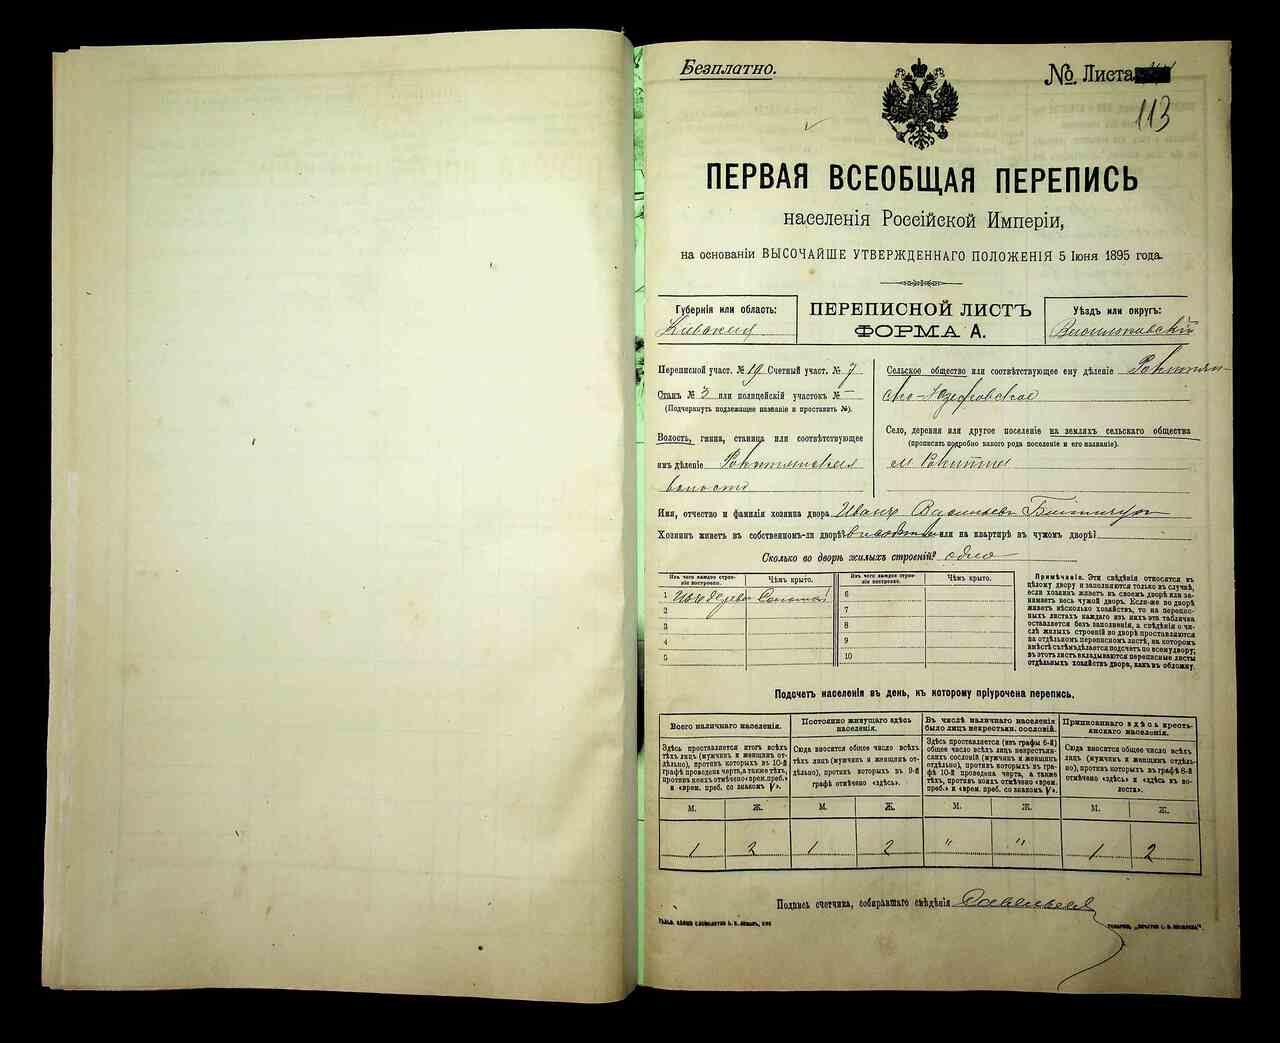 Безплатно.
№ Листа
113
ПЕРВАЯ ВСЕОБЩАЯ ПЕРЕПИСЬ
населенія Россійской Имперіи,
на основаніи ВЫСОЧАЙШЕ УТВЕРЖДЕННАГО ПОЛОЖЕНІЯ 5 Іюня 1895 года.
Губернія или область:
Кіевская
ПЕРЕПИСНОЙ ЛИСТЪ
ФОРМА А.
Уѣздъ или округъ:
Васильковскій
Переписной участ. № 19 Счетный участ. № 7
Станъ № 3 или полицейскій участокъ № –
(Подчеркнуть подлежащее названіе и проставить №).
Волость, гмина, станица или соотвѣтствующее
имъ дѣленіе Рокитянская
волость
Сельское общество или соотвѣтствующее ему дѣленіе Рокитян-
ско-Юзефовское
Село, деревня или другое поселеніе на земляхъ сельскаго общества
(прописать подробно какого рода поселеніе и его названіе).
м Рокитна
Имя, отчество и фамилія хозяина двора Иванъ Васильевъ
Хозяинъ живетъ въ собственномъ-ли дворѣ? или на квартирѣ въ чужомъ дворѣ?
Сколько во дворѣ жилыхъ строеній? одно
Изъ чего каждое строе-
ніе построено.
Чѣмъ крыто.
1 Соломой
2
3
4
5
Изъ чего каждое строе-
ніе построено.
Чѣмъ крыто.
6
7
8
9
10
Примѣчанія. Эти свѣдѣнія относятся къ
цѣлому двору и заполняются только въ случаѣ,
если хозяинъ живетъ въ своемъ дворѣ или за-
нимаетъ весь чужой дворъ. Если-же во дворѣ
живетъ нѣсколько хозяйствъ, то на перепис-
ныхъ листахъ каждаго изъ нихъ эта табличка
оставляется безъ заполненія, а свѣдѣнія о чи-
слѣ жилыхъ строеній во дворѣ проставляются
на отдѣльномъ переписномъ листѣ, на которомъ
вмѣстѣ съ тѣмъ дѣлается подсчетъ по всему двору;
въ этотъ листъ вкладываются переписные листы
отдѣльныхъ хозяйствъ двора, какъ въ обложку.
Подсчетъ населенія въ день, къ которому пріурочена перепись.
Всего наличнаго населенія.
Здѣсь проставляется итогъ всѣхъ
тѣхъ лицъ (мужчинъ и женщинъ от-
дѣльно), противъ которыхъ въ 10-й
графѣ проведена черта, а также тѣхъ,
противъ коихъ отмѣчено «врем. преб.»
и «врем. преб. со знакомъ V».
Постоянно живущаго здѣсь
населенія.
Сюда вносится общее число всѣхъ
тѣхъ лицъ (мужчинъ и женщинъ от-
дѣльно), противъ которыхъ въ 9-й
графѣ отмѣчено «здѣсь».
Въ числѣ наличнаго населенія
было лицъ некрестьян. сословій.
Здѣсь проставляется (изъ графы 6-й)
общее число всѣхъ лицъ некрестьян-
скихъ сословій (мужчинъ и женщинъ
отдѣльно), противъ которыхъ въ гра-
фѣ 10-й проведена черта, а также
тѣхъ, противъ коихъ отмѣчено «врем.
преб.» и «врем. преб. со знакомъ V».
Приписаннаго здѣсь кресть-
янскаго населенія.
Сюда вносится общее число всѣхъ
лицъ (мужчинъ и женщинъ отдѣль-
но), противъ которыхъ въ графѣ 8-й
отмѣчено «здѣсь» и «здѣсь въ во-
лости».
М. Ж. М. Ж. М. Ж. М. Ж.
1 2 1 2 " " 1 2
Подпись счетчика, собиравшаго свѣдѣнія